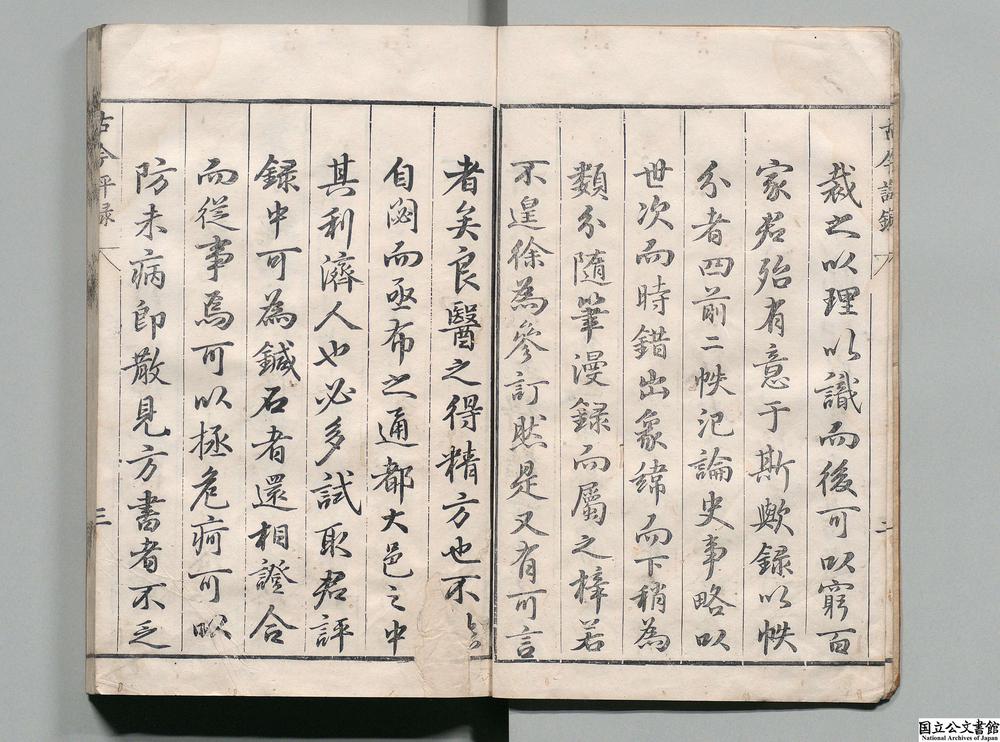 裁之以理以識而後可以窮百
家君殆有意于斯歟錄以帙
分者四前二帙汜論史事略以
世次而時錯出象緯而下稍為
類分隨筆漫錄而屬之梓若
不遑徐為參訂然是又有可言
者矣良醫之得精方也不
自閟而亟布之通都大邑之中
其利濟人也必多試取君評
錄中可為鍼石者還相證合
而從事焉可以拯危痾可以
防未病即散見方書者不乏
古今評錄
二
古今評录
三
国立公文書館
National Archives of Japan